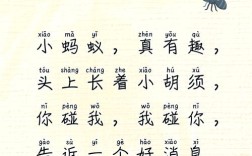 xiǎo mǎ yǐ zhēn yǒu qù
小蚂蚁，真有趣，
tóu shàng zhǎng zhe xiǎo hú xū
头上长着小胡须，
nǐ pèng wǒ wǒ pèng nǐ
你碰我，我碰你，
gào sù yí gè hǎo xiāo xi
告诉一个好消息